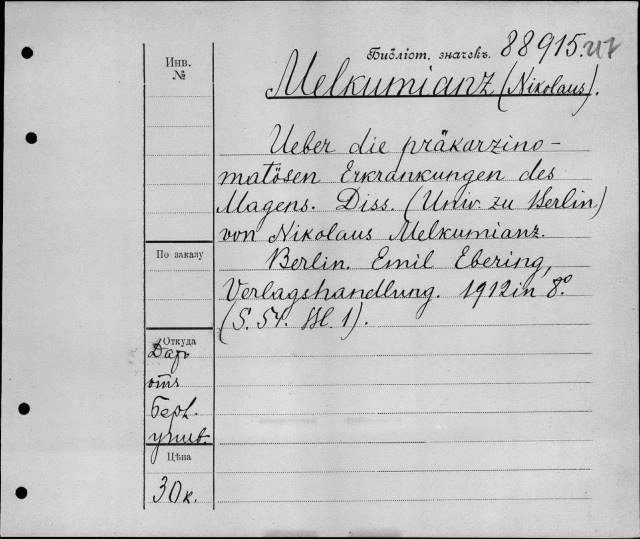 Библіот. значекъ. 88915.
Инв.
№
Melkumianz (Nikolaus).
Ueber die präkarzino-
matösen Erkrankungen des
Magens. Diss. (Univ. zu Berlin)
von Nikolaus Melkumianz.
По заказу
Berlin. Emil Ebering,
Verlagshandlung. 1912 in 8º.
(S. 54. Bl. 1).
Откуда
Даръ
отъ
Берл.
унив.
Цѣна
30 к.